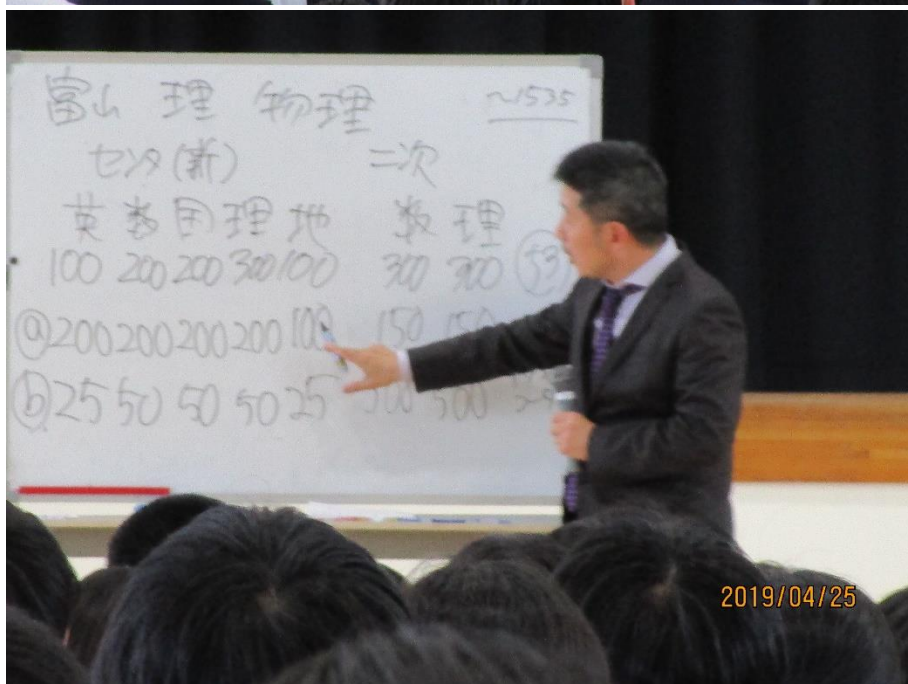 富山 理 物理 ~1535
センタ(新) 二次
英 数 国 理 地 数 理
100 200 200 300 100 300 300 53
ⓐ 200 200 200 200 100 150 150
ⓑ 25 50 50 50 25 300 300
2019/04/25